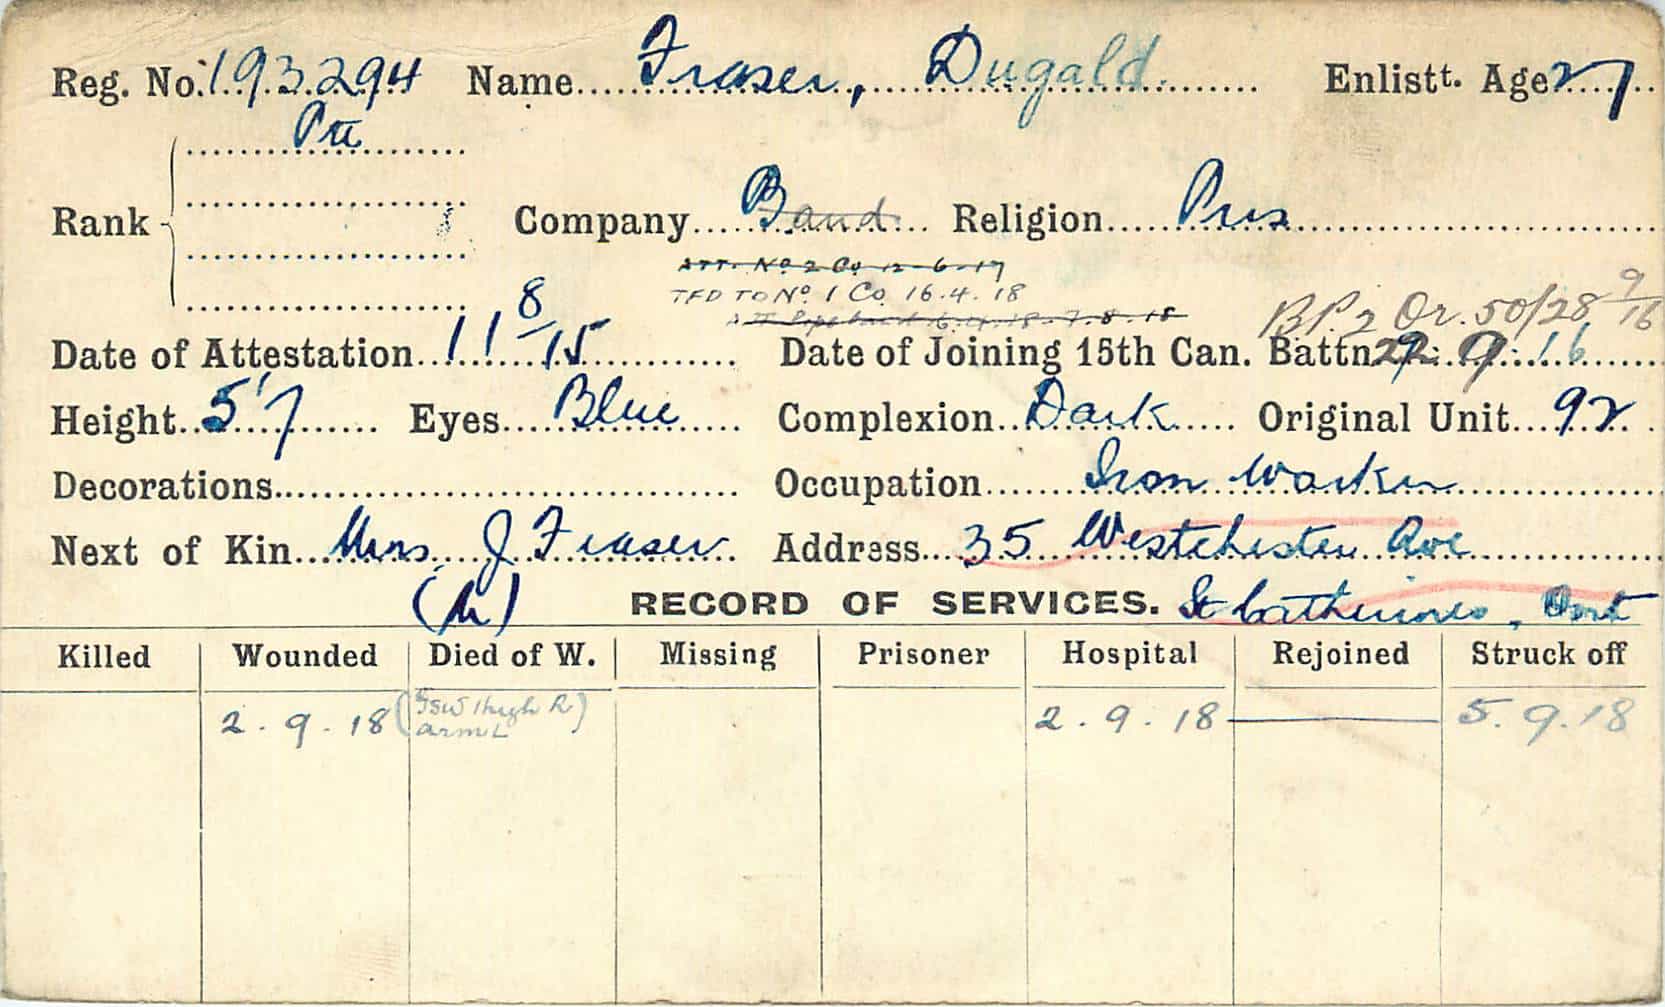 Reg. No. 193294 Name Fraser, Dugald. Enlistt. Age 27
Pte
Rank Company Band Religion Pres
ATT. No 2 Co 12-6-17
TFD TO No 1 Co 16.4.18
ATT Pipe band 16.4.18-7.8.18
BP.2 Or. 50/28 9/16
Date of Attestation 11 8/15 Date of Joining 15th Can. Battn 9.16
Height 5'7 Eyes Blue Complexion Dark Original Unit 92
Decorations Occupation Iron Worker
Next of Kin Mrs. J Fraser Address 35 Westchester Ave
(M) RECORD OF SERVICES. St Catherines, Ont
Killed Wounded Died of W. Missing Prisoner Hospital Rejoined Struck off
2.9.18 (GSW thigh R) 2.9.18 5.9.18
arm L